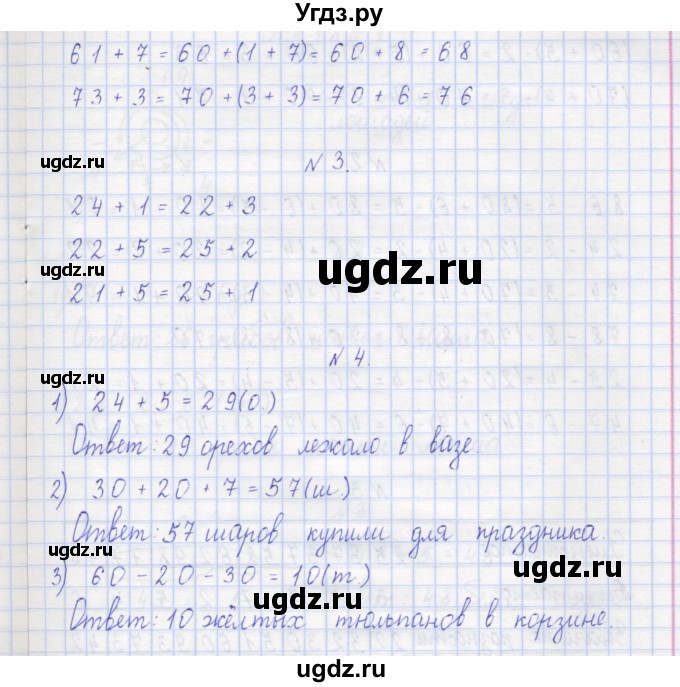 Угдз.ру
61 + 7 = 60 + (1 + 7) = 60 + 8 = 68
73 + 3 = 70 + (3 + 3) = 70 + 6 = 76
ugdz.ru
ugdz.ru
N 3.
24 + 1 = 22 + 3
22 + 5 = 25 + 2
ugdz.ru
ugdz.ru
21 + 5 = 25 + 1
N 4.
ugdz.ru
1) 24 + 5 = 29 (о.)
Ответ: 29 орехов лежало в вазе.
ugdz.ru
2) 30 + 20 + 7 = 57 (ш.)
Ответ: 57 шаров купили для праздника.
ugdz.ru
ugdz.ru
3) 60 - 20 - 30 = 10 (т)
ugdz.ru
Ответ: 10 жёлтых тюльпанов в корзине.
ugdz.ru